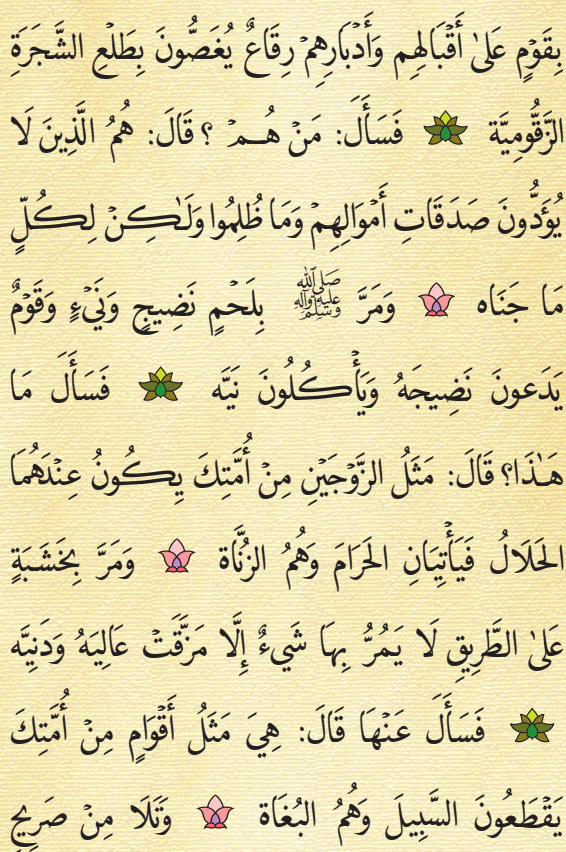 بِقَوْمٍ عَلىٰ أَقْبَالِهِم وَأَدْبَارِهِمْ رِقَاعٌ يُغَصُّونَ بِطَلْعِ الشَّجَرَةِ
الزَّقُّومِيَّة فَسَأَلَ: مَنْ هُــمْ ؟ قَالَ: هُمُ الَّذِينَ لَا
يُؤَدُّونَ صَدَقَاتِ أَمْوَالِهِمْ وَمَا ظُلِمُوا وَلَٰكِنْ لِكُلٍّ
مَا جَنَاه وَمَرَّ ﷺ بِلَحْمٍ نَضِيجٍ وَنَيْءٍ وَقَوْمٌ
يَدَعونَ نَضِيجَهُ وَيَأْكُلُونَ نَيَّه فَسَأَلَ مَا
هَٰذَا؟ قَالَ: مَثَلُ الزَّوْجَيْنِ مِنْ أُمَّتِكَ يِكُونُ عِنْدَهُمَا
الحَلَالُ فَيَأْتِيَانِ الحَرَامَ وَهُمُ الزُّنَّاة وَمَرَّ بِخَشَبَةٍ
عَلىٰ الطَّرِيقِ لَا يَمُرُّ بِهَا شَيءٌ إِلَّا مَزَّقَتْ عَالِيَهُ وَدَنِيَّه
فَسَأَلَ عَنْهَا قَالَ: هِيَ مَثَلُ أَقْوَامٍ مِنْ أُمَّتِكَ
يَقْطَعُونَ السَّبِيلَ وَهُمُ البُغَاة وَتَلَا مِنْ صَرِيحِ